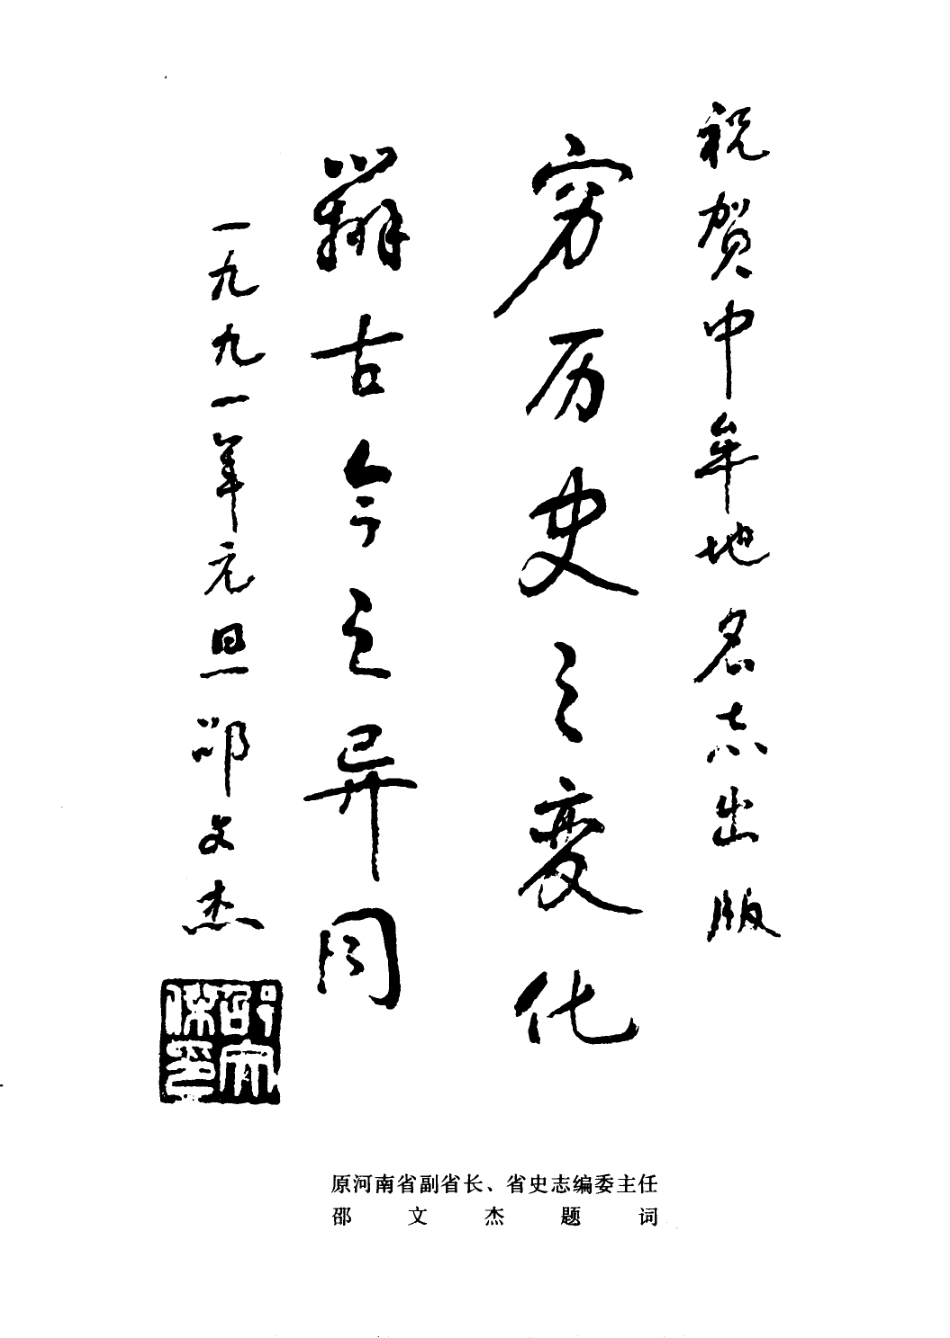 祝贺中牟地名志出版
穷历史之变化
辨古今之异同
一九九一年元旦 邵文杰
邵文杰印
原河南省副省长、省史志编委主任
邵文杰题词